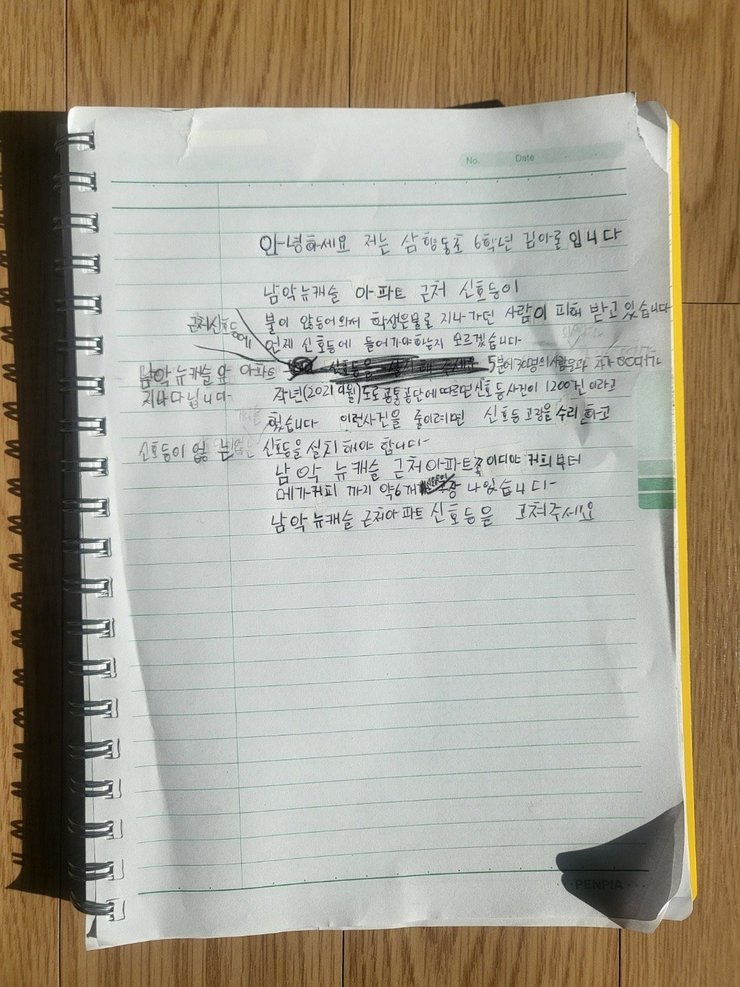 No. Date
안녕하세요 저는 삼향동초 6학년 김아롬입니다
남악뉴캐슬 아파트 근처 신호등이
불이 않들어와서 학생은물로 지나가던 사람이 피해 받고있습니다
근처신호등에
언제 신호등에 들어가야하는지 모르겠습니다
남악 뉴캐슬 앞 아파트 5분에 30명의사람
지나다닙니다 작년(2021 9월)도로교통공단에 따르면 신호등사건이 1200건 이라고
했습니다 이런사건을 줄이려면 신호등 고장을 수리 하고
신호등이 없는 신호등을 설치해야 합니다
남악 뉴캐슬 근처아파트 이디야 커피부터
메가커피 까지 약6개 나있습니다
남악뉴캐슬 근처아파트 신호등을 고쳐주세요
PENPIA